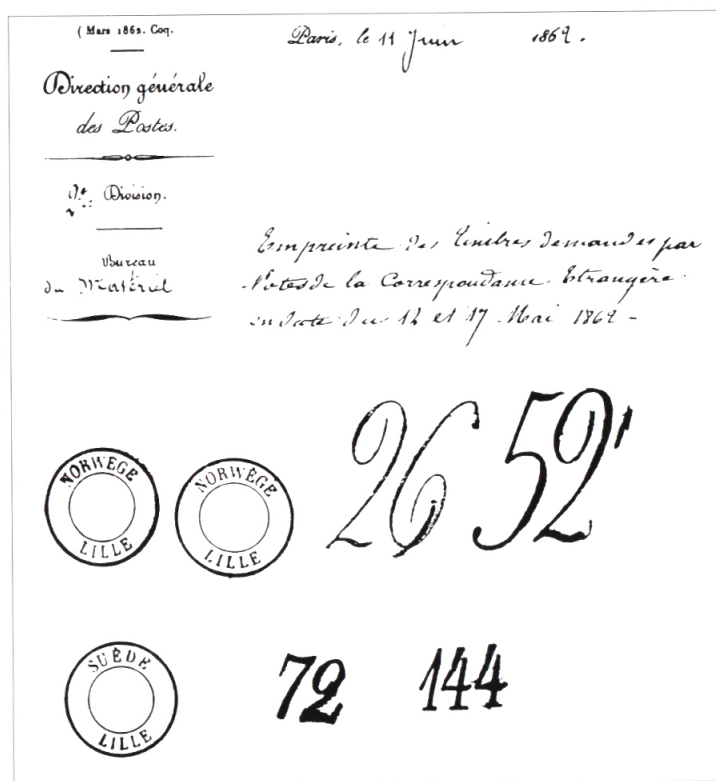 ( Mars 1862. Coq.
Paris, le 11 Juin 1862.
Direction générale
des Postes.
2e. Division.
Bureau
du Matériel
Empreinte des timbres demandés par
Notes de la Correspondance Etrangère
en date du 12 et 17 Mai 1862 -
26 52
NORWEGE
LILLE
NORWÈGE
LILLE
SUÈDE
LILLE
72 144